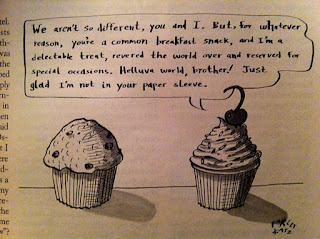 We aren't so different, you and I. But, for whatever
reason, you're a common breakfast snack, and I'm a
delectable treat, revered the world over and reserved for
special occasions. Helluva world, brother! Just
glad I'm not in your paper sleeve.